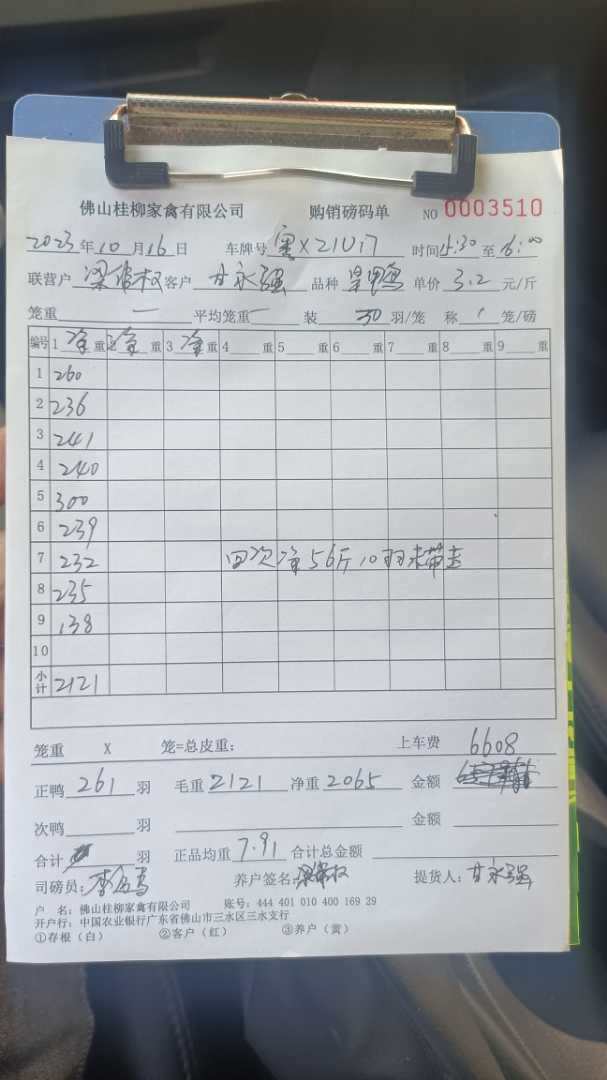 佛山桂柳家禽有限公司 购销磅码单 NO 0003510
2023年10月16日 车牌号 粤X21U17 时间15:30至16:00
联营户 客户 甘永强 品种 旱鸭 单价 3.2 元/斤
笼重 — 平均笼重 — 装 30 羽/笼 称 1 笼/磅
编号 1 净 重 2 净 重 3 净 重 4 重 5 重 6 重 7 重 8 重 9 重
1 260
2 236
3 241
4 240
5 300
6 239
7 232 四次净56斤10羽未带走
8 235
9 138
10
小计 2121
笼重 X 笼=总皮重: 上车费 6608
正鸭 261 羽 毛重 2121 净重 2065 金额
次鸭 羽 金额
合计 羽 正品均重 7.91 合计总金额
司磅员: 养户签名: 提货人: 甘永强
户 名: 佛山桂柳家禽有限公司 账号: 444 401 010 400 169 29
开户行: 中国农业银行广东省佛山市三水区三水支行
①存根（白） ②客户（红） ③养户（黄）